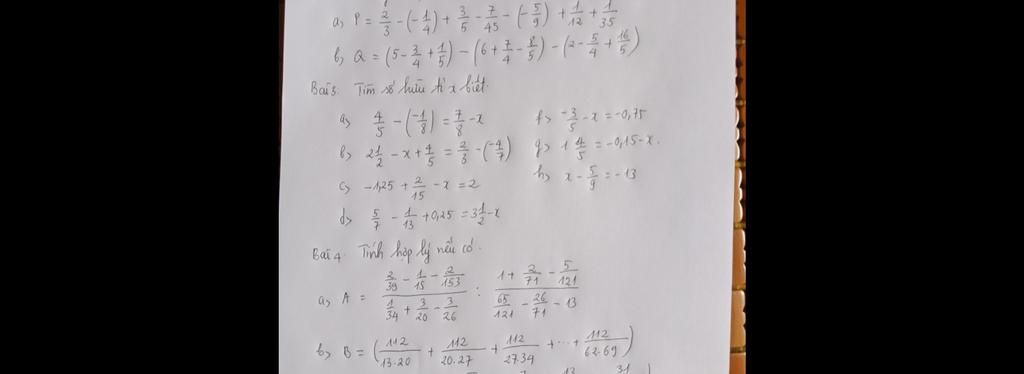 a) P = 2/3 - (-1/4) + 3/5 - 7/45 - (-5/9) + 1/12 + 1/35
b) Q = (5 - 3/4 + 1/5) - (6 + 7/4 - 8/5) - (2 - 5/4 + 16/5)
Bài 3. Tìm số hữu tỉ x biết.
a) 4/5 - (-1/8) = 7/8 - x f) -3/5 - x = -0,75
b) 2 1/2 - x + 4/5 = 2/3 - (-4/7) g) 1 4/5 = -0,15 - x.
c) -1,25 + 2/15 - x = 2 h) x - 5/9 = -13
d) 5/7 - 1/13 + 0,25 = 3 1/2 - x
Bài 4. Tính hợp lý nếu có.
a) A = (2/39 - 1/15 - 2/153)/(1/34 + 3/20 - 3/26) : (1 + 2/71 - 5/121)/(65/121 - 26/71 - 13)
b) B = (112/13.20 + 112/20.27 + 112/27.34 + ... + 112/62.69)